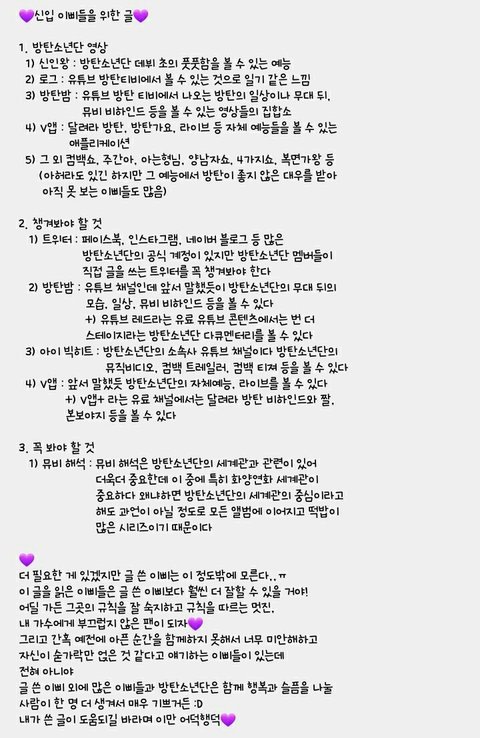 💜신입 이삐들을 위한 글💜
1. 방탄소년단 영상
1) 신인왕 : 방탄소년단 데뷔 초의 풋풋함을 볼 수 있는 예능
2) 로그 : 유튜브 방탄티비에서 볼 수 있는 것으로 일기 같은 느낌
3) 방탄밤 : 유튜브 방탄 티비에서 나오는 방탄의 일상이나 무대 뒤,
뮤비 비하인드 등을 볼 수 있는 영상들의 집합소
4) V앱 : 달려라 방탄, 방탄가요, 라이브 등 자체 예능들을 볼 수 있는
애플리케이션
5) 그 외 컴백쇼, 주간아, 아는형님, 양남자쇼, 4가지쇼, 복면가왕 등
(아허라도 있긴 하지만 그 예능에서 방탄이 좋지 않은 대우를 받아
아직 못 보는 이삐들도 많음)
2. 챙겨봐야 할 것
1) 트위터 : 페이스북, 인스타그램, 네이버 블로그 등 많은
방탄소년단의 공식 계정이 있지만 방탄소년단 멤버들이
직접 글을 쓰는 트위터를 꼭 챙겨봐야 한다
2) 방탄밤 : 유튜브 채널인데 앞서 말했듯이 방탄소년단의 무대 뒤의
모습, 일상, 뮤비 비하인드 등을 볼 수 있다
+) 유튜브 레드라는 유료 유튜브 콘텐츠에서는 번 더
스테이지라는 방탄소년단 다큐멘터리를 볼 수 있다
3) 아이 빅히트 : 방탄소년단의 소속사 유튜브 채널이다 방탄소년단의
뮤직비디오, 컴백 트레일러, 컴백 티져 등을 볼 수 있다
4) V앱 : 앞서 말했듯 방탄소년단의 자체예능, 라이브를 볼 수 있다
+) V앱+ 라는 유료 채널에서는 달려라 방탄 비하인드와 짤,
본보야지 등을 볼 수 있다
3. 꼭 봐야 할 것
1) 뮤비 해석 : 뮤비 해석은 방탄소년단의 세계관과 관련이 있어
더욱더 중요한데 이 중에 특히 화양연화 세계관이
중요하다 왜냐하면 방탄소년단의 세계관의 중심이라고
해도 과언이 아닐 정도로 모든 앨범에 이어지고 떡밥이
많은 시리즈이기 때문이다
💜
더 필요한 게 있겠지만 글 쓴 이삐는 이 정도밖에 모른다..ㅠ
이 글을 읽은 이삐들은 글 쓴 이삐보다 훨씬 더 잘할 수 있을 거야!
어딜 가든 그곳의 규칙을 잘 숙지하고 규칙을 따르는 멋진,
내 가수에게 부끄럽지 않은 팬이 되자💜
그리고 간혹 예전에 아픈 순간을 함께하지 못해서 너무 미안해하고
자신이 숟가락만 얹은 것 같다고 얘기하는 이삐들이 있는데
전혀 아니야
글 쓴 이삐 외에 많은 이삐들과 방탄소년단은 함께 행복과 슬픔을 나눌
사람이 한 명 더 생겨서 매우 기쁘거든 :D
내가 쓴 글이 도움되길 바라며 이만 어덕행덕💜